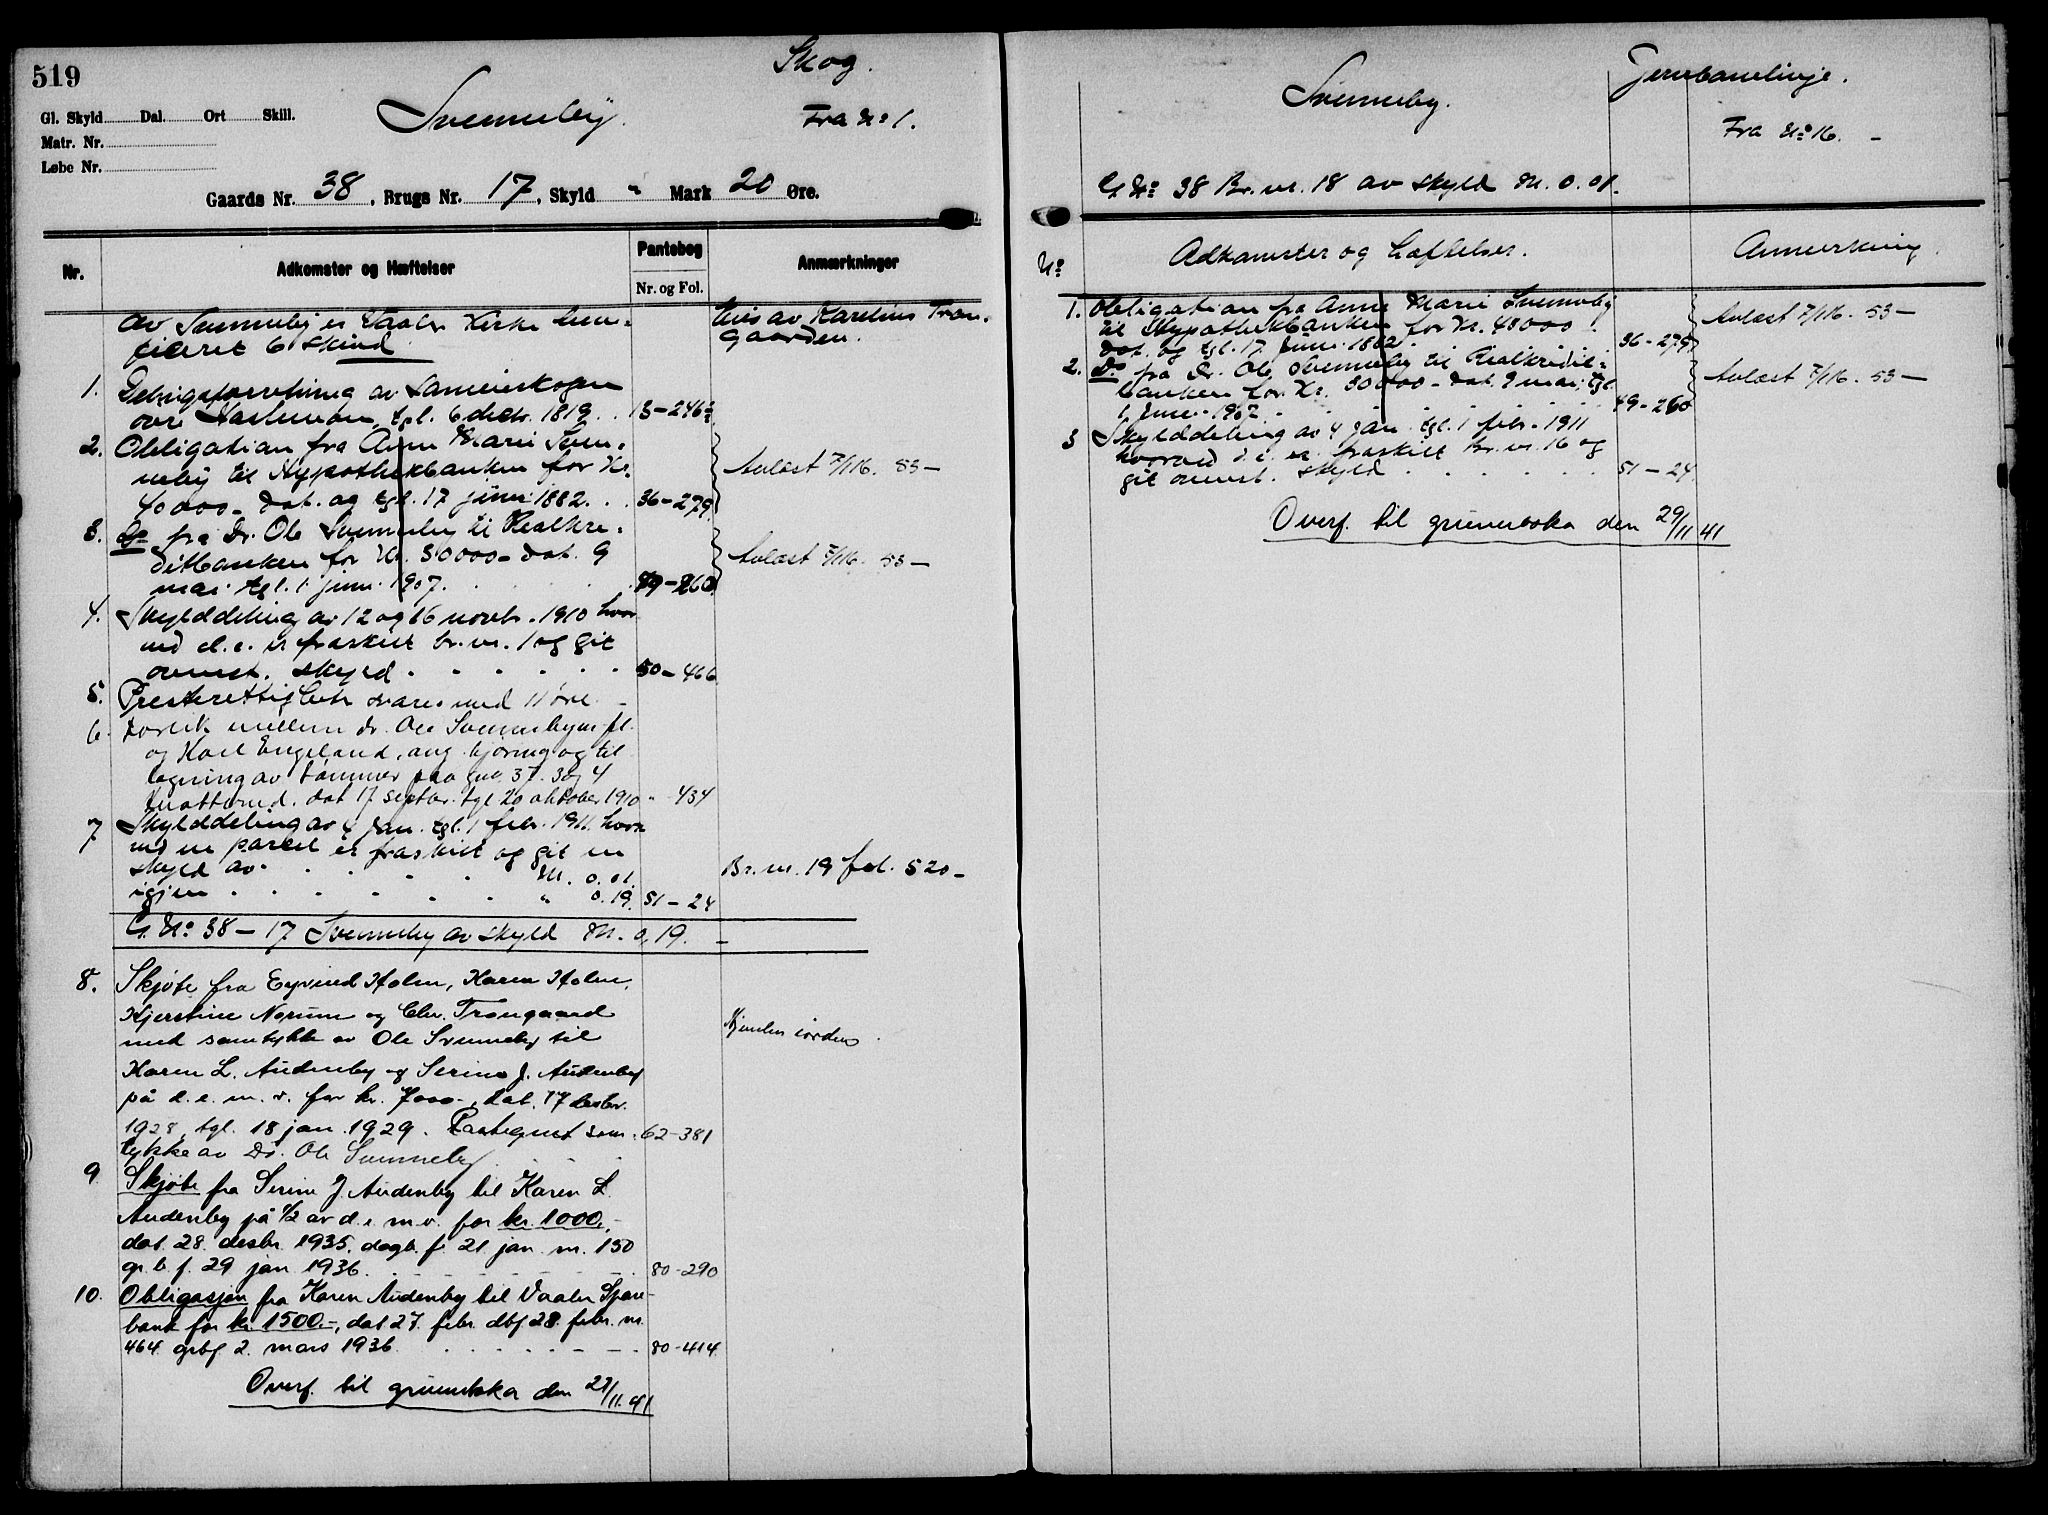 519
Skog.
Svenneby.
Fra No 1.
Gl. Skyld Dal. Ort Skill.
Matr. Nr.
Løbe Nr.
Gaards Nr. 38, Brugs Nr. 17, Skyld " Mark 20 Øre.
Nr. Adkomster og Hæftelser Pantebog Anmærkninger
Nr. og Fol.
av Svenneby er Vaaler Kirke bene-
ficeret 6 skind.
Eies av Karelius Tron-
gaarden.
1. av Sameieskogen
over Hasle tgl. 6 decbr. 1819. 13-246
2. Obligation fra Anne Marie Sven-
neby til Hypothekbanken for Kr.
40000- dat. og tgl. 17 juni 1882. . 36-279. Avlæst 7/1 16. 53-
3. Do fra Dr. Ole Svenneby til Realkre-
ditbanken for Kr. 30000- dat. 9
mai. tgl. 1 juni 1907. 49-260 Avlæst 7/1 16. 53-
4. Skylddeling av 12 og 16 novbr. 1910 hvor
ved d. e. er fraskilt br. nr. 1 og git
ovennt. skyld. 50-466.
5. Presterettighete svares med 11 øre. -
6. Forlik mellem dr. Ole Svenneby m. fl.
og Karl Engeland, ang. kjøring og til
lægning av tømmer paa gnr. 37. 3 og 4
dat 17 septbr. tgl 20 oktober 1910 " 434
7 Skylddeling av 4 jan. tgl. 1 febr. 1911. hvor
ved en parcel er fraskilt og git en
skyld av. M. 0.01. Br. nr. 19 fol. 520-
igjen " 0.19. 51-24
G. No 38-17 Svenneby av skyld M. 0,19. -
8. Skjøte fra Eyvind Holm, Karen Holm,
Kjerstine Norum og Chr. Trongaard
med samtykke av Ole Svenneby til
Karen L. Audenby og Serine J. Audenby
på d. e. m. v. for kr. 7000-, dat. 17 desbr.
1928, tgl. 18 jan. 1929. Paategnet sam- 62-381
tykke av Dr. Ole Svenneby.
9. Skjøte fra Serine J. Audenby til Karen L.
Audenby på 1/2 av d. e. m. v. for kr. 1000,-
dat. 28. desbr. 1935. dagb. f. 21 jan. nr. 150
gr. b. f. 29 jan 1936. 80-290
10. Obligasjon fra Karen Audenby til Vaaler Spare-
bank for kr. 1500.-, dat 27. febr. dbf 28. febr. nr.
464. grbf 2. mars 1936. 80-414
Overf. til grunnboka den 29/11.41
Svenneby.
Jernbanelinje.
Fra No 16. -
G No 38 Br. nr. 18 av skyld M. 0.01.
No Adkomster og hæftelser. Anmerkning.
1. Obligation fra Anne Marie Svenneby
til Hypothekbanken for Kr. 40000.
dat. og tgl. 17 juni 1882. 36-279 Avlæst 7/1 16. 53-
2. Do fra Dr. Ole Svenneby til Realkredit-
banken for Kr. 30000- dat. 9 mai. tgl.
1 juni 1907. 49-260 Avlæst 7/1 16. 53-
3 Skylddeling av 4 jan. tgl. 1 febr. 1911
hvorved d. e. er fraskilt Br. nr. 16 og
git ovennt. skyld 51-24.
Overf. til grunnboka den 29/11 41